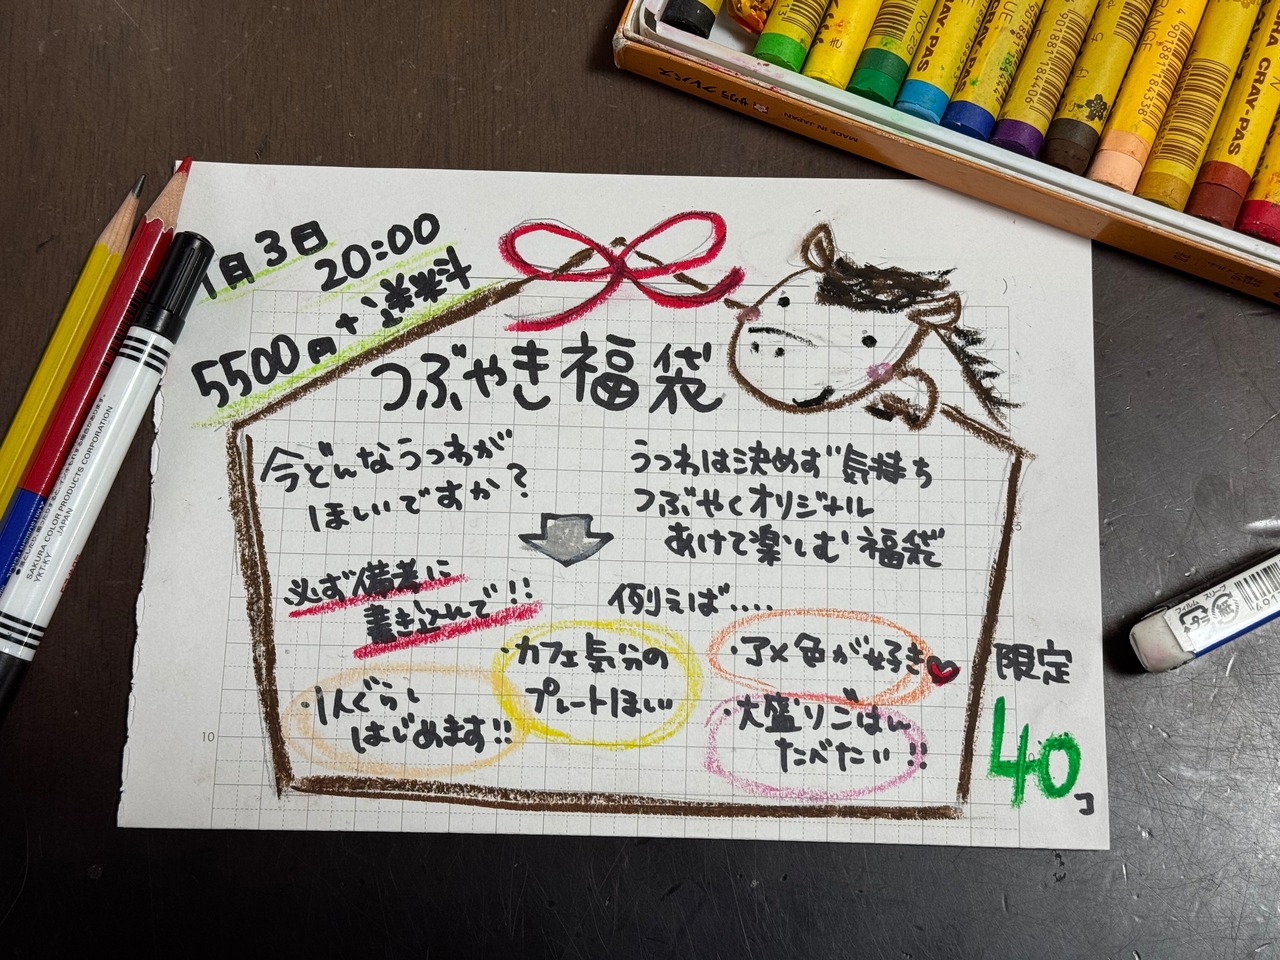 1月3日
20:00
5500円+送料
つぶやき福袋
今どんなうつわが
ほしいですか?
うつわは決めず気持ち
つぶやくオリジナル
あけて楽しむ福袋
必ず備考に
書き込んで!!
例えば....
・カフェ気分の
プレートほしい
・アメ色が好き
・1人ぐらし
はじめます!!
・大盛りごはん
たべたい!!
限定
40コ
サクラクレパス
MADE IN JAPAN
CRAY-PAS
NO.29
SAKURA COLOR PRODUCTS CORPORATION
YKT-KY JAPAN
10
5